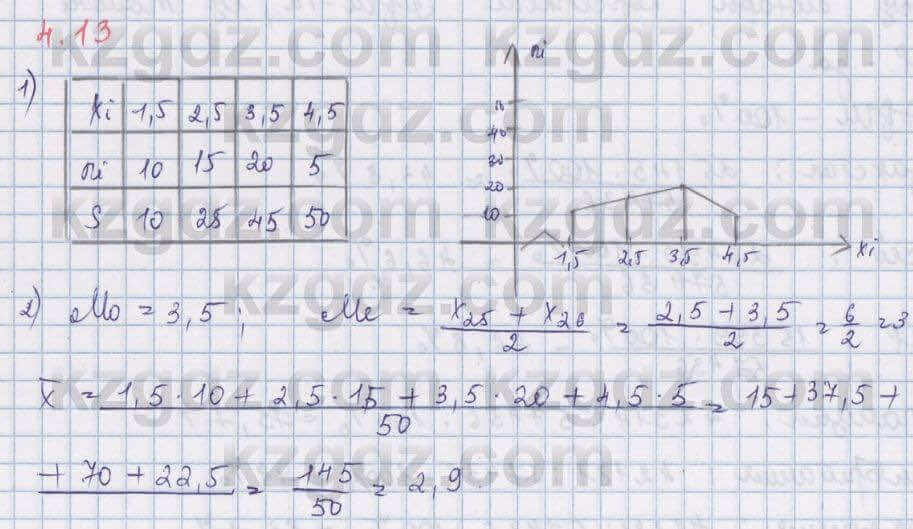 4.13
1)
xi 1,5 2,5 3,5 4,5
ni 10 15 20 5
S 10 25 45 50
ni
50
40
30
20
10
1,5 2,5 3,5 4,5 xi
2) Mo = 3,5; Me = (x25 + x26)/2 = (2,5 + 3,5)/2 = 6/2 = 3
x̄ = (1,5·10 + 2,5·15 + 3,5·20 + 4,5·5)/50 = 15+37,5+
+ 70 + 22,5 = 145/50 = 2,9
kzgdz.com kzgdz.com
kzgdz.com
kzgdz.com kzgdz.com
kzgdz.com
kzgdz.com kzgdz.com
kzgdz.com